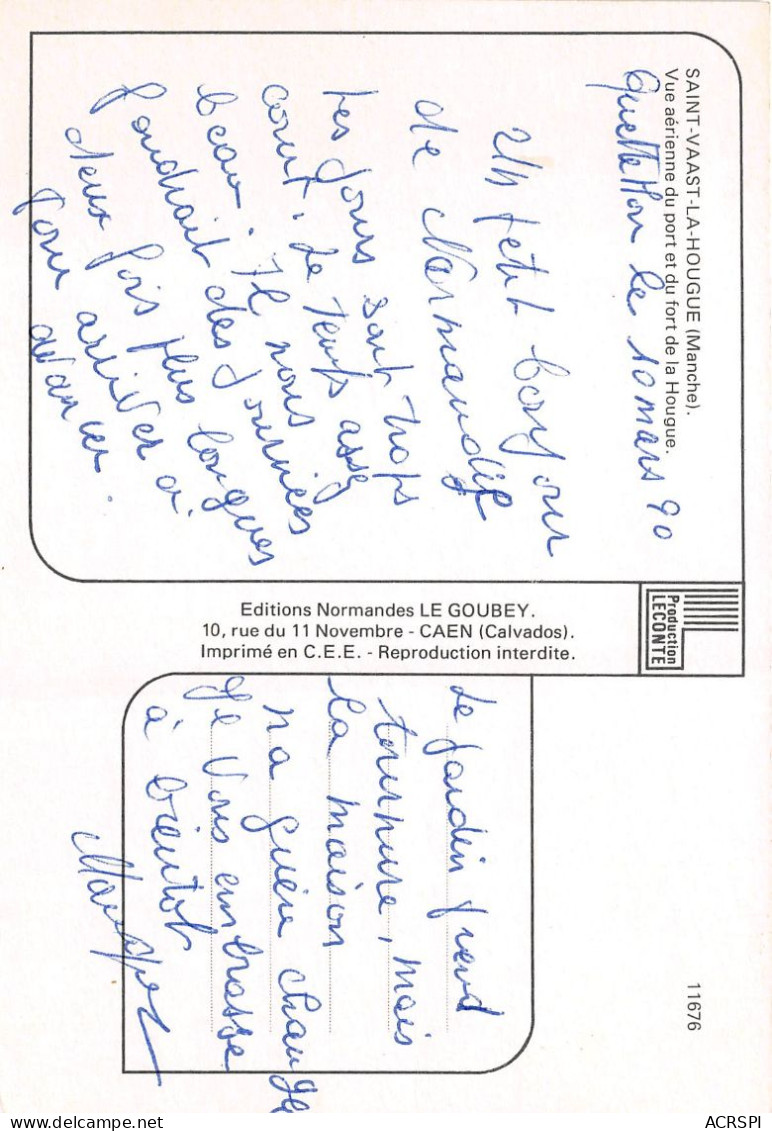 SAINT-VAAST-LA-HOUGUE (Manche).
Vue aérienne du port et du fort de la Hougue.
Quettehou le 10 mars 90
Un petit bonjour
de Normandie
Les jours sont trops
court. Le temps assez
beau. Il nous
faudrait des journées
deux fois plus longues
pour arriver à
avancer.
Editions Normandes LE GOUBEY.
10, rue du 11 Novembre - CAEN (Calvados).
Imprimé en C.E.E. - Reproduction interdite.
Production
LECONTE
Le jardin prend
tournure, mais
la maison
n'a guère changé
Je vous embrasse
à bientôt
11676
ACRSPI